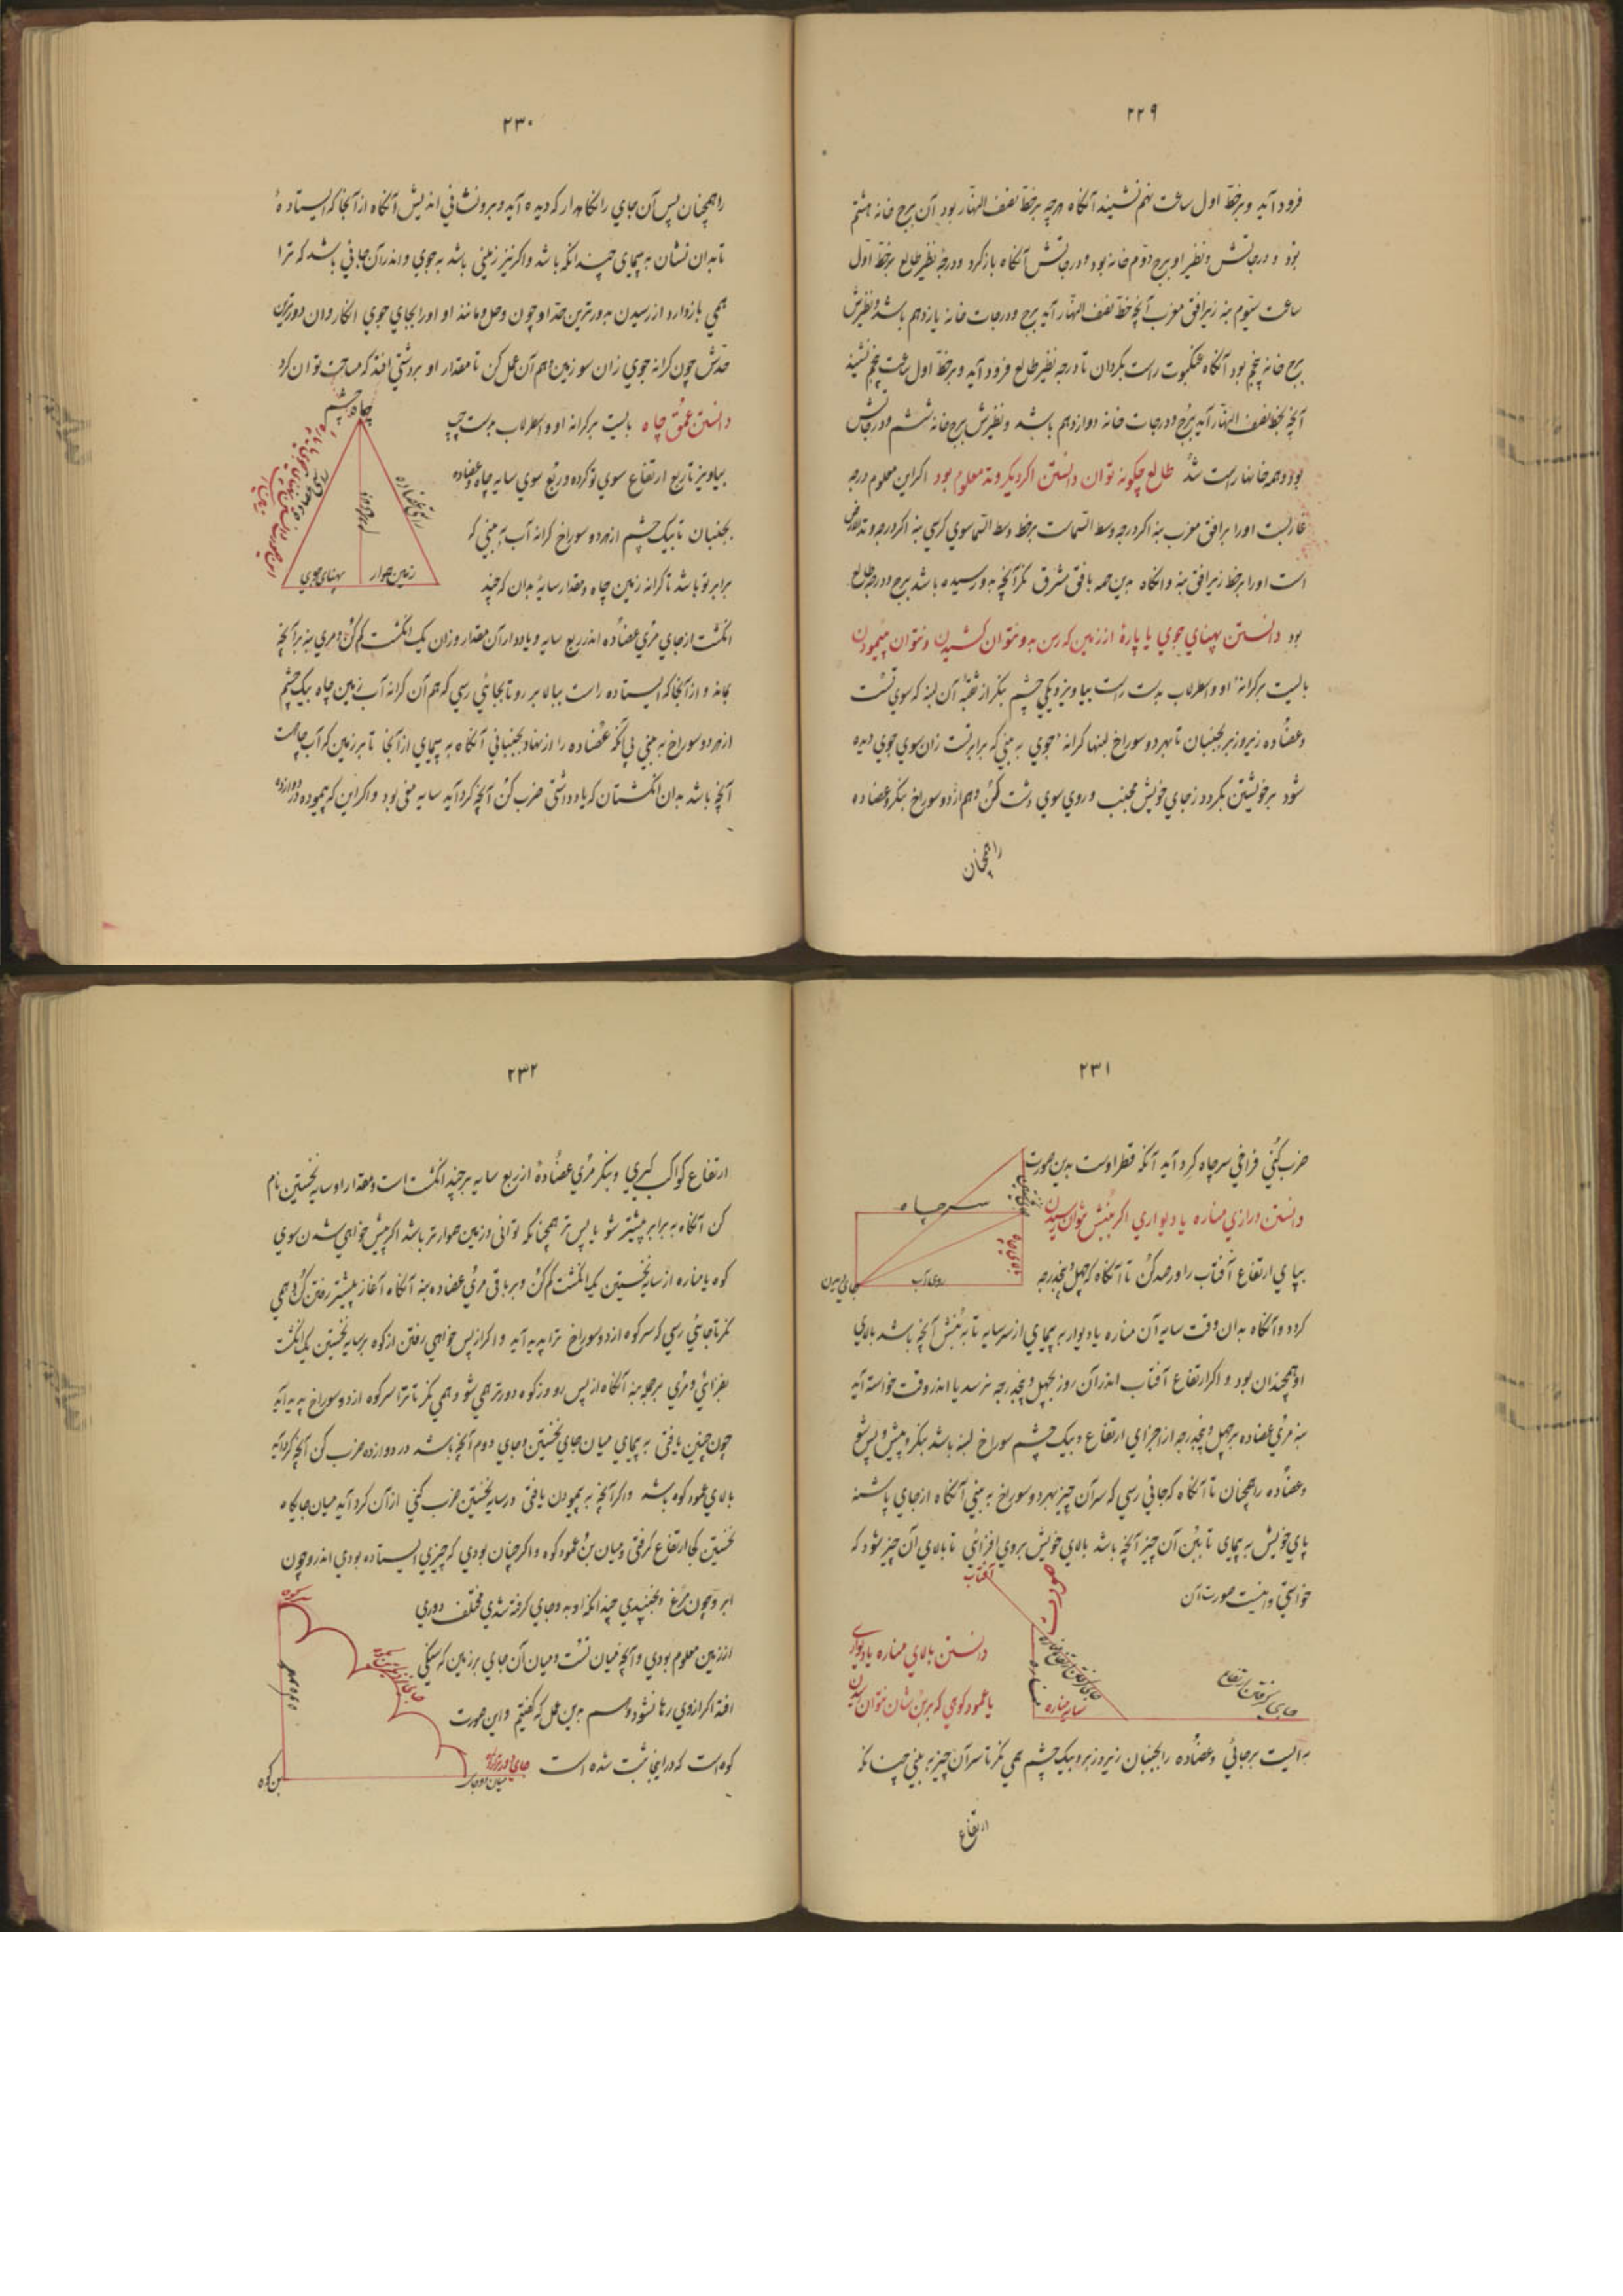 ۲۲۹
فرود آید و برخط اول ساعت نهم نشیند آنگاه هرچه برخط نصف النهار بود آن برج خانه هشتم
بود و درجاتش و نظیر او برج دوم خانه بود و درجاتش آنگاه بازگرد و درجه نظیر طالع برخط اول
ساعت سیوم بنه زیر افق مغرب آنچه خط نصف النهار آید برج و درجات خانه یازدهم باشد و نظیرش
برج خانه پنجم بود آنگاه عنکبوت راست بگردان تا درجه نظیر طالع فرود آید و برخط اول ساعت پنجم نشیند
آنچه بخط نصف النهار آید برج و درجات خانه دوازدهم باشد و نظیرش برج خانه ششم و درجاتش
بود و همه خانها راست شد طالع چگونه توان دانستن اگر دیگر وتد معلوم بود اگر این معلوم درجه
غاربست اورا برافق مغرب بنه اگر درجه وسط السماست برخط وسط السما سوی کرسی بنه اگر درجه وتدالارض
است اورا برخط زیر افق بنه و آنگاه بدین همه بافق مشرق نگر آنچه بدو رسیده باشد برج و درجه طالع
بود دانستن پهنای جوی یا پارهٔ از زمین که رسن بدو نتوان کشیدن و نتوان پیمودن
بایست برکرانهٔ او و اسطرلاب بدست راست بیاویز و بیکی چشم بنگر از ثقبهٔ آن لبنه که سوی تست
و عضاده زیر و زبر بجنبان تا بهر دو سوراخ لبنها کرانهٔ جوی به بینی که برابر تست زان سوی جوی دیده
شود برخویشتن بگرد و زجای خویش مجنب و روی سوی دشت کن و هم از دو سوراخ بنگر و عضاده
راهمچنان
۲۳۰
راهمچنان پس آن جای را نگاهدار که دیده آید و برو نشانی اندیش آنگاه از آنجا که ایستادهٔ
تا بدان نشان به پیمای چندانکه باشد و اگر نیز زمینی باشد نه جوی و اندر آن جانی باشد که ترا
همی بازدارد از رسیدن بدورترین حد او چون وحل و مانند او اورا بجای جوی انگار و آن دورترین
حدش چون کرانه جوی زان سو زمین و هم آن عمل کن تا مقدار او بردشتی افتد که مساحت توان کرد
دانستن عمق چاه بایست برکرانه او و اسطرلاب بدست چپ
بیاویز تا ربع ارتفاع سوی تو گردد و ربع سوی سایه چاه و عضاده
بجنبان تا بیک چشم از هر دو سوراخ کرانه آب به بینی که
برابر تو باشد تا کرانه زمین چاه و مقدار سایهٔ بدان که چند
انگشت از جای مری عضاده اندر ربع سایه و یاد دار آن مقدار وزان یک انگشت کم کن و مری بنه برآنچه
بماند و از آنجا که ایستاده راست ببالا بر رو تا بجائی رسی که هم آن کرانه آب زمین چاه بیک چشم
از هر دو سوراخ به بینی بی آنکه عضاده را از نهاد بجنبانی آنگاه به پیمای از آنجا تا بر زمین که آب چاهست
آنچه باشد بدان انگشتان که یاد داشتی ضرب کن آنچه گرد آید سایه منی بود و اگر این که پیموده در دوازده
چاه چشم
زمین هموار
پهنای جوی
۲۳۱
ضرب کنی فراخی سرچاه گرد آید آنکه قطر اوست بدین صورت
دانستن درازی مناره یا دیواری اگر به بنش بتوان رسیدن
بپای ارتفاع آفتاب را و رصد کن تا آنگاه که چهل و پنج درجه
گردد و آنگاه بدان وقت سایه آن مناره یا دیوار به پیمای از سر سایه تا به بنش آنچه باشد بالای
او همچندان بود و اگر ارتفاع آفتاب اندر آن روز بچهل و پنج درجه نرسد یا اندر وقت خواسته آید
بنه مری عضاده برچهل و پنج درجه از اجزای ارتفاع و بیک چشم سوراخ لبنه باشد بنگر و پیش و پس شو
و عضاده راهمچنان تا آنگاه که جائی رسی که سر آن چیز بهر دو سوراخ به بینی آنگاه از جای پاشنه
پای خویش به پیمای تا ببن آن چیز آنچه باشد بالای خویش بروی افزائی تا بالای آن چیز شود که
خواستی و اینست صورت آن
سر چاه
روی آب
صورت
آفتاب
مناره
سایه مناره
جای گرفتن ارتفاع
دانستن بالای مناره یا دیوار
یا عمود کوهی که به بن شان نتوان رسیدن
بدانیست برجائی و عضاده را بجنبان زیر و زبر و بیک چشم همی نگر تا سر آن چیز به بینی چنانکه
ارتفاع
۲۳۲
ارتفاع کواکب گیری و بنگر مری عضاده از ربع سایه برچند انگشت است و مقدار او سایه نخستین نام
کن آنگاه به برابر پیشتر شو یا پس تر همچنانکه توانی و زمین هموارتر باشد اگر پیش خواهی شدن سوی
کوه یا مناره از سایه نخستین یک انگشت کم کن و بر باقی مری عضاده بنه آنگاه آغاز پیشتر رفتن کن و همی
نگر تا جائی رسی که سر کوه از دو سوراخ ترا پدید آید و اگر از پس خواهی رفتن از کوه برسایه نخستین یک انگشت
بفزائی و مری برجو بنه آنگاه از پس رو وز کوه دورتر همی شو و همی نگر تا ترا سر کوه از دو سوراخ پدید آید
چون چنین یافتی به پیمای میان جای نخستین و جای دوم آنچه باشد در دوازده ضرب کن آنچه گرد آید
بالای عمود کوه باشد و اگر آنچه به پیمودن یافتی در سایه نخستین ضرب کنی از آن گرد آید میان جایگاه
نخستین کجا ارتفاع گرفتی و میان بن عمود کوه و اگر چنان بودی که چیزی ایستاده بودی اندر و چون
ابر و چون مرغ و بجنبیدی چندانکه او به دو جای گرفته شدی مختلف دوری
از زمین معلوم بودی و آنچه میان تست و میان آن جای بر زمین که سنگی
افتد اگر از وی رها شود و اسم بدین عمل که گفتیم و این صورت
کوه است که در اینجا ثبت شده است
سر کوه
عمود کوه
بن کوه
میان دو جای